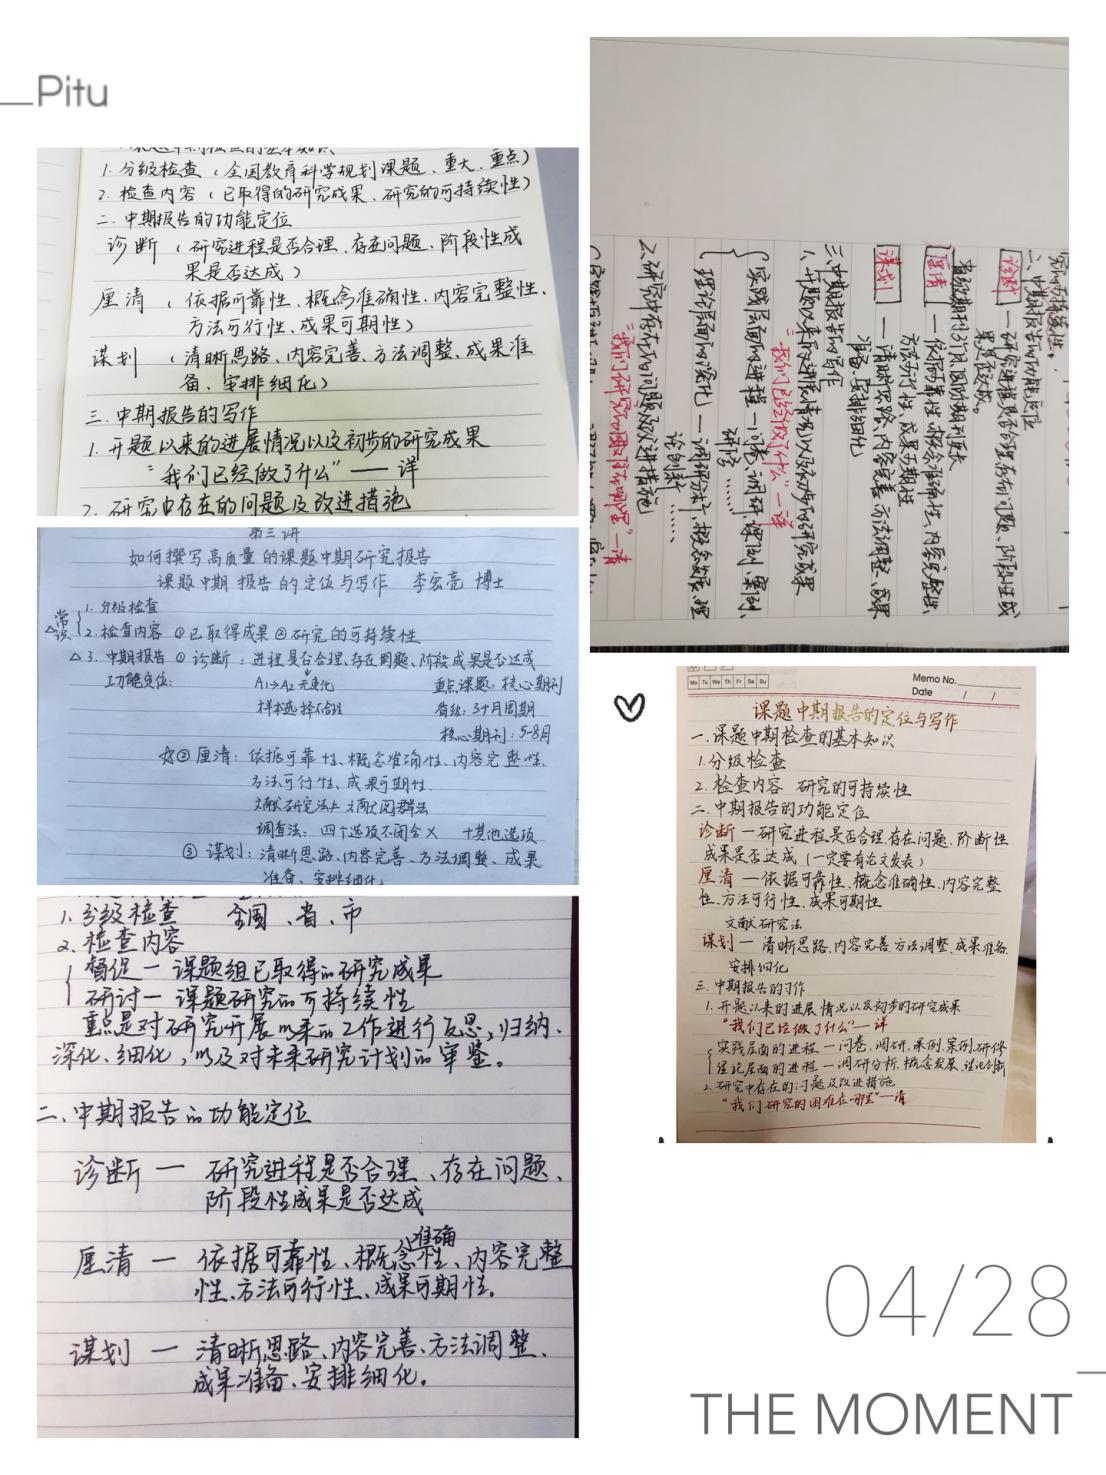 Pitu
1. 分级检查（全国教育科学规划课题、重大、重点）
2. 检查内容（已取得的研究成果、研究的可持续性）
二. 中期报告的功能定位
诊断（研究进程是否合理、存在问题、阶段性成
果是否达成）
厘清（依据可靠性、概念准确性、内容完整性、
方法可行性、成果可期性）
谋划（清晰思路、内容完善、方法调整、成果准
备、安排细化）
三. 中期报告的写作
1. 开题以来的进展情况以及初步的研究成果
“我们已经做了什么”——详
2. 研究中存在的问题及改进措施
第三讲
如何撰写高质量的课题中期研究报告
课题中期报告的定位与写作 李宏亮 博士
常识
1. 分级检查
2. 检查内容 ①已取得成果 ②研究的可持续性
△3. 中期报告 ①诊断：进程是否合理、存在问题、阶段成果是否达成
功能定位： A1→A2 无变化 重点课题：核心期刊
样本选择不合理 省级：3个月周期
核心期刊：5-8月
☆②厘清：依据可靠性、概念准确性、内容完整性、
方法可行性、成果可期性
文献研究法≠文献阅读法
调查法：四个选项不闭合 +其他选项
③谋划：清晰思路、内容完善、方法调整、成果
准备、安排细化
1. 分级检查 全国、省、市
2. 检查内容
督促一 课题组已取得的研究成果
研讨一 课题研究的可持续性
重点是对研究开展以来的工作进行反思，归纳、
深化、细化，以及对未来研究计划的审鉴。
二、中期报告的功能定位
诊断 — 研究进程是否合理、存在问题、
阶段性成果是否达成
厘清 — 依据可靠性、概念准确性、内容完整
性、方法可行性、成果可期性。
谋划 — 清晰思路、内容完善、方法调整、
成果准备、安排细化。
二、中期报告的功能定位
诊断 — 研究进程是否合理、存在问题、阶段性成
果是否达成。
厘清 — 依据可靠性、概念准确性、内容完整性、
方法可行性、成果可期性
谋划 — 清晰思路、内容完善、方法调整、成果
准备、安排细化
三、中期报告的写作
1、开题以来的进展情况以及初步的研究成果
“我们已经做了什么”—详
实践层面的进程—问卷、调研、课例、案例、
研修……
理论层面的深化—调研分析、概念发展、理
论创新……
2、研究中存在的问题及改进措施
“我们研究的困难在哪里”—清
Mo Tu We Th Fr Sa Su
Memo No.
Date / /
课题中期报告的定位与写作
一. 课题中期检查的基本知识
1. 分级检查
2. 检查内容 研究的可持续性
二. 中期报告的功能定位
诊断—研究进程是否合理、存在问题、阶断性
成果是否达成（一定要有论文发表）
厘清—依据可靠性、概念准确性、内容完整
性、方法可行性、成果可期性
文献研究法
谋划—清晰思路、内容完善、方法调整、成果准备、
安排细化
三. 中期报告的习作
1. 开题以来的进展情况以及初步的研究成果
“我们已经做了什么”—详
实践层面的进程—问卷、调研、课例、案例、研修
理论层面的进程—调研分析、概念发展、理论创新
2. 研究中存在的问题及改进措施
“我们研究的困难在哪里”—清
04/28
THE MOMENT